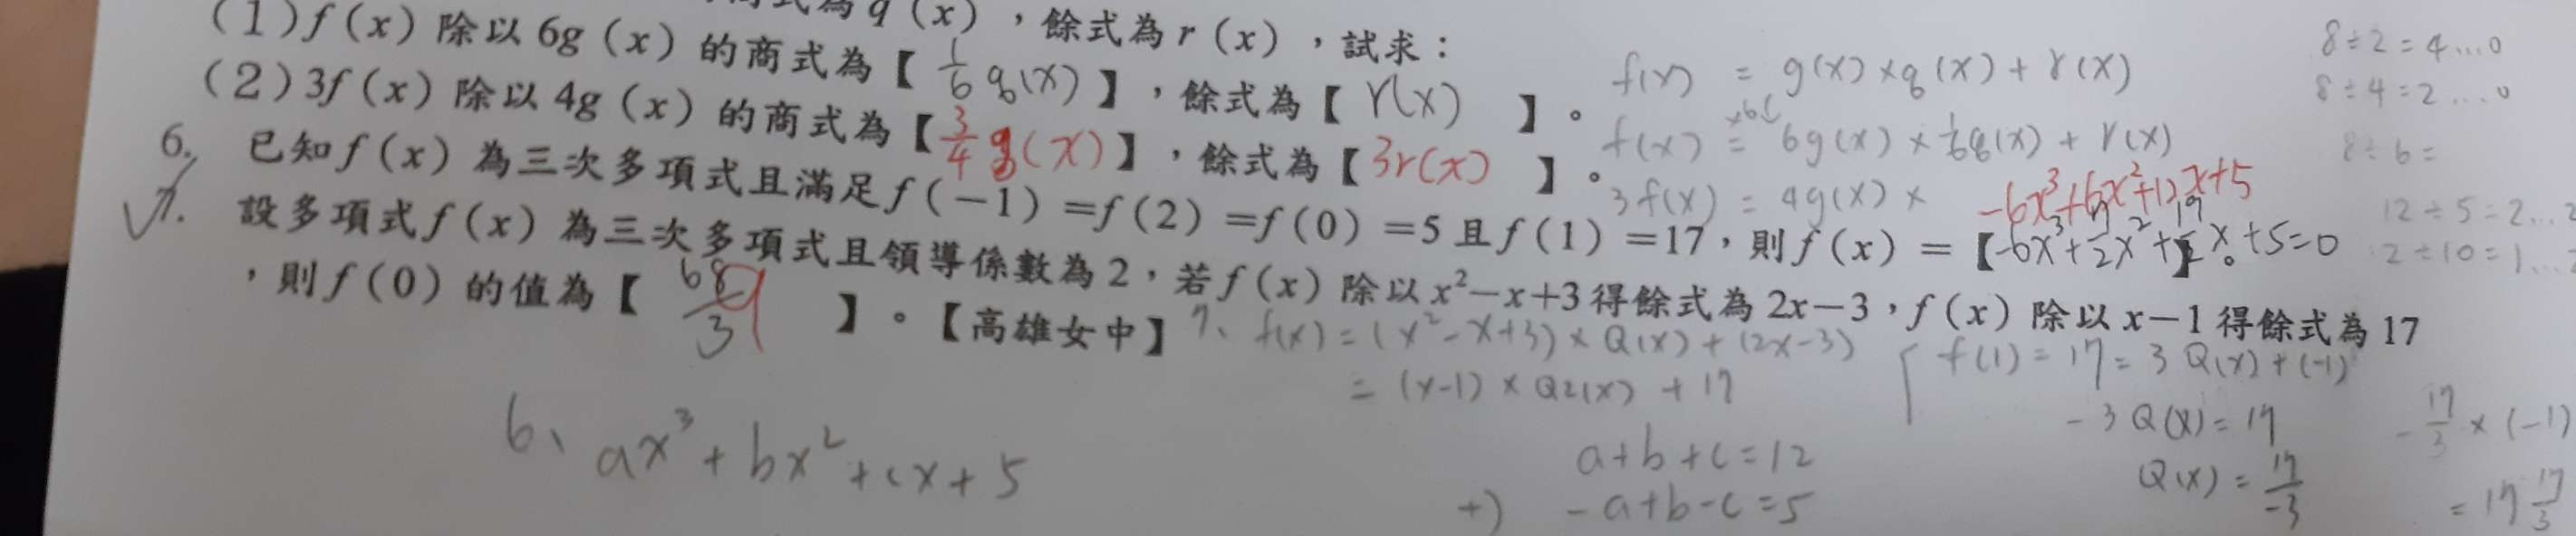 為 q(x),餘式為 r(x),試求:
(1) f(x) 除以 6g(x) 的商式為【 1/6 q(x) 】,餘式為【 r(x) 】。
(2) 3f(x) 除以 4g(x) 的商式為【 3/4 q(x) 】,餘式為【 3r(x) 】。
6. 已知 f(x) 為三次多項式且滿足 f(-1)=f(2)=f(0)=5 且 f(1)=17,則 f(x)=【 】。
-6x³+6x²+12x+5
✓7. 設多項式 f(x) 為三次多項式且領導係數為 2,若 f(x) 除以 x²-x+3 得餘式為 2x-3,f(x) 除以 x-1 得餘式為 17
,則 f(0) 的值為【 】。【高雄女中】
f(x) = g(x)×q(x)+r(x)
f(x) = 6g(x)×1/6q(x)+r(x)
3f(x) = 4g(x)×
8÷2=4...0
8÷4=2...0
8÷6=
12÷5=2...2
7、f(x)=(x²-x+3)×Q(x)+(2x-3)
=(x-1)×Q2(x)+17
f(1)=17=3Q(x)+(-1)
-3Q(x)=17
Q(x)=17/-3
-17/3×(-1)
6、ax³+bx²+cx+5
a+b+c=12
+) -a+b-c=5